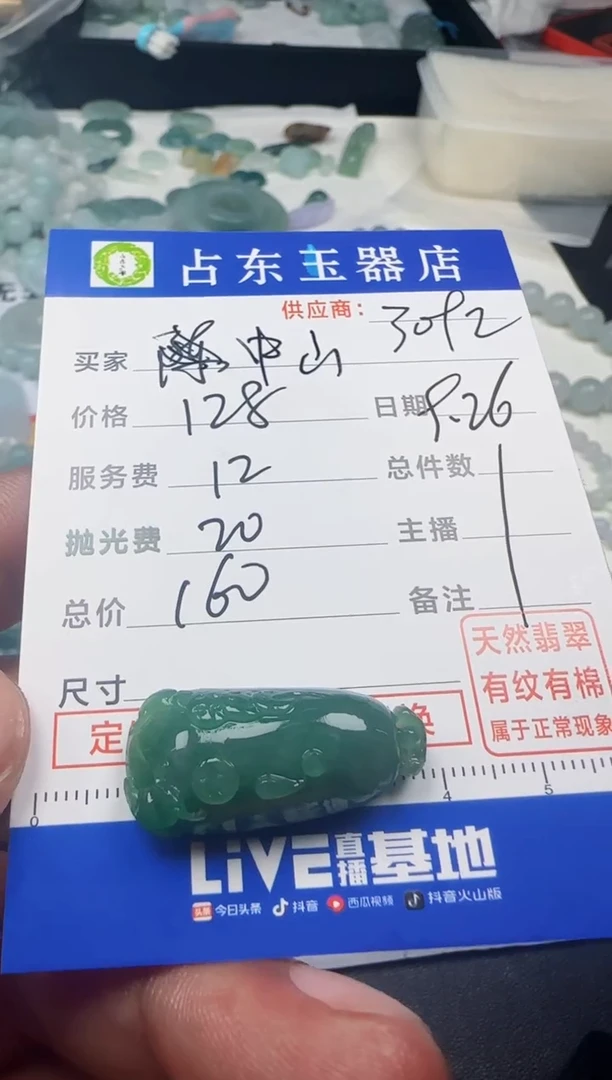 占东玉器店
供应商: 3092
买家 中山
价格 128 日期 9.26
服务费 12 总件数
抛光费 20 主播
总价 160 备注
天然翡翠
有纹有棉
属于正常现象
尺寸
定 换
0 4 5
LiVE直播基地
头条 今日头条 抖音 西瓜视频 抖音火山版